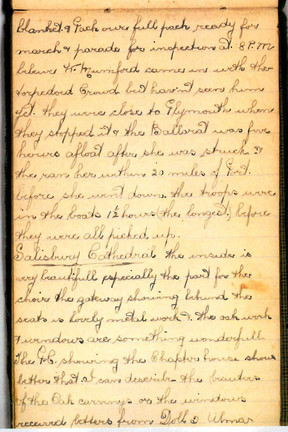 blanket & Pack our full pack ready for
march & parade for inspection at 8 P.M.
believe H. Mumford came in with the
torpedoed crowd but havint seen him
yet. they were close to Plymouth when
they stopped it & the Ballarat was five
hours afloat after she was struck &
the ran her within 20 miles of Port.
before she went down the troops were
in the boats 1½ hours (the longest) before
they were all picked up.
Salisbury Cathedral the inside is
very beautifull especially the part for the
choir the gateway showing behind the
seats is lovely metal work & the oak work
& windows are something wonderfull
The P.C. showing the Chapter house shows
better that I can describe the beauties
of the Oak carvings or the windows
received letters from Doll &